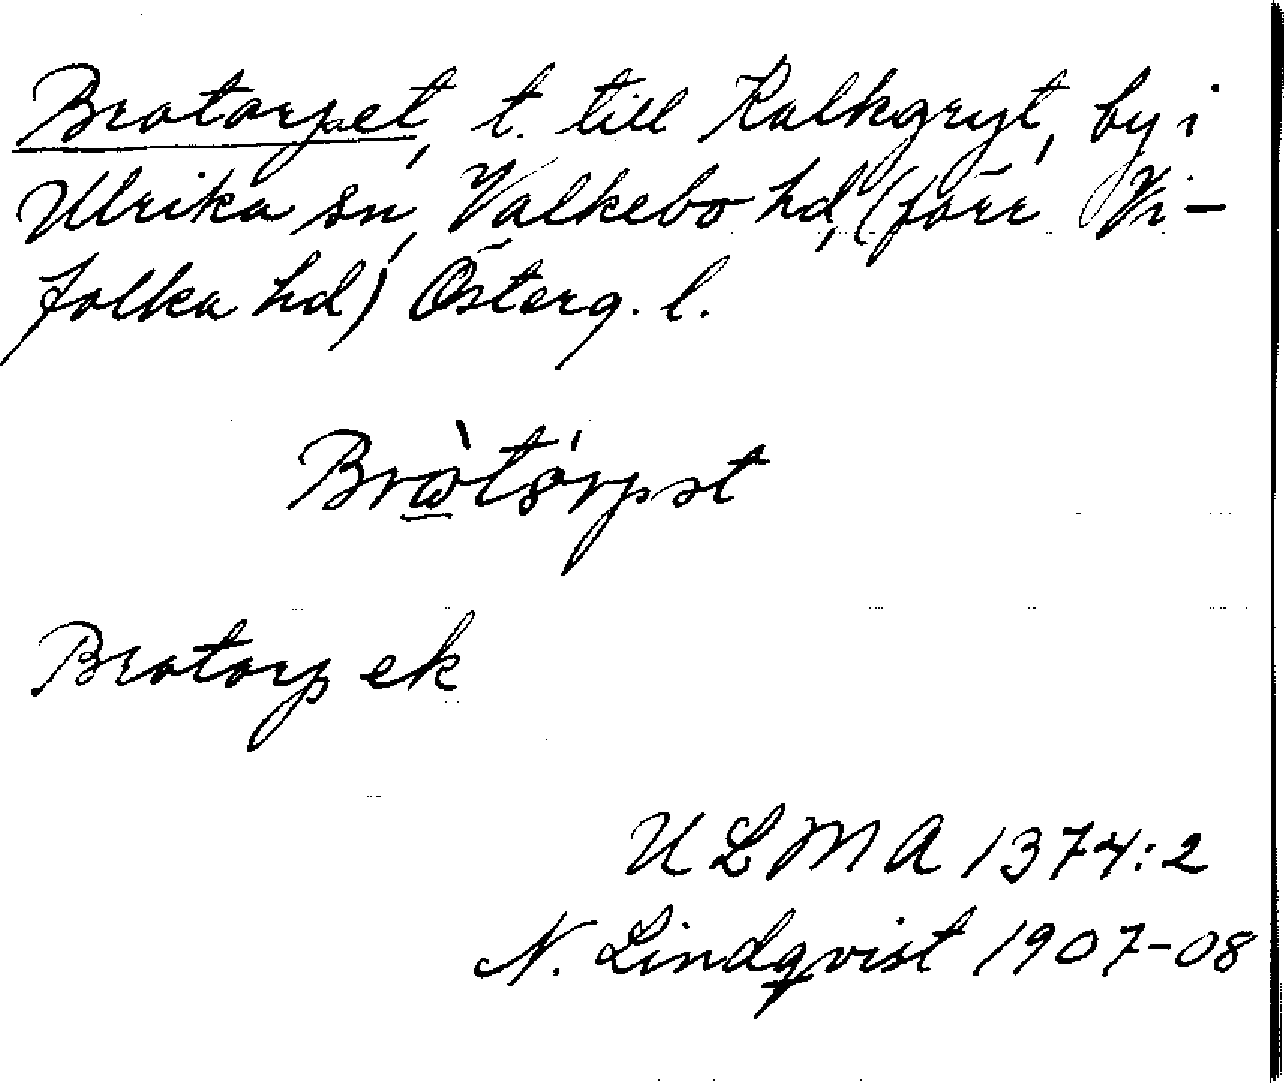 Brotorpet, t. till Kalkgryt, by i
Ulrika sn, Valkebo hd, (förr Vi-
folka hd) Österg. l.
Brotorp ek
ULMA 1374:2
N. Lindqvist 1907-08